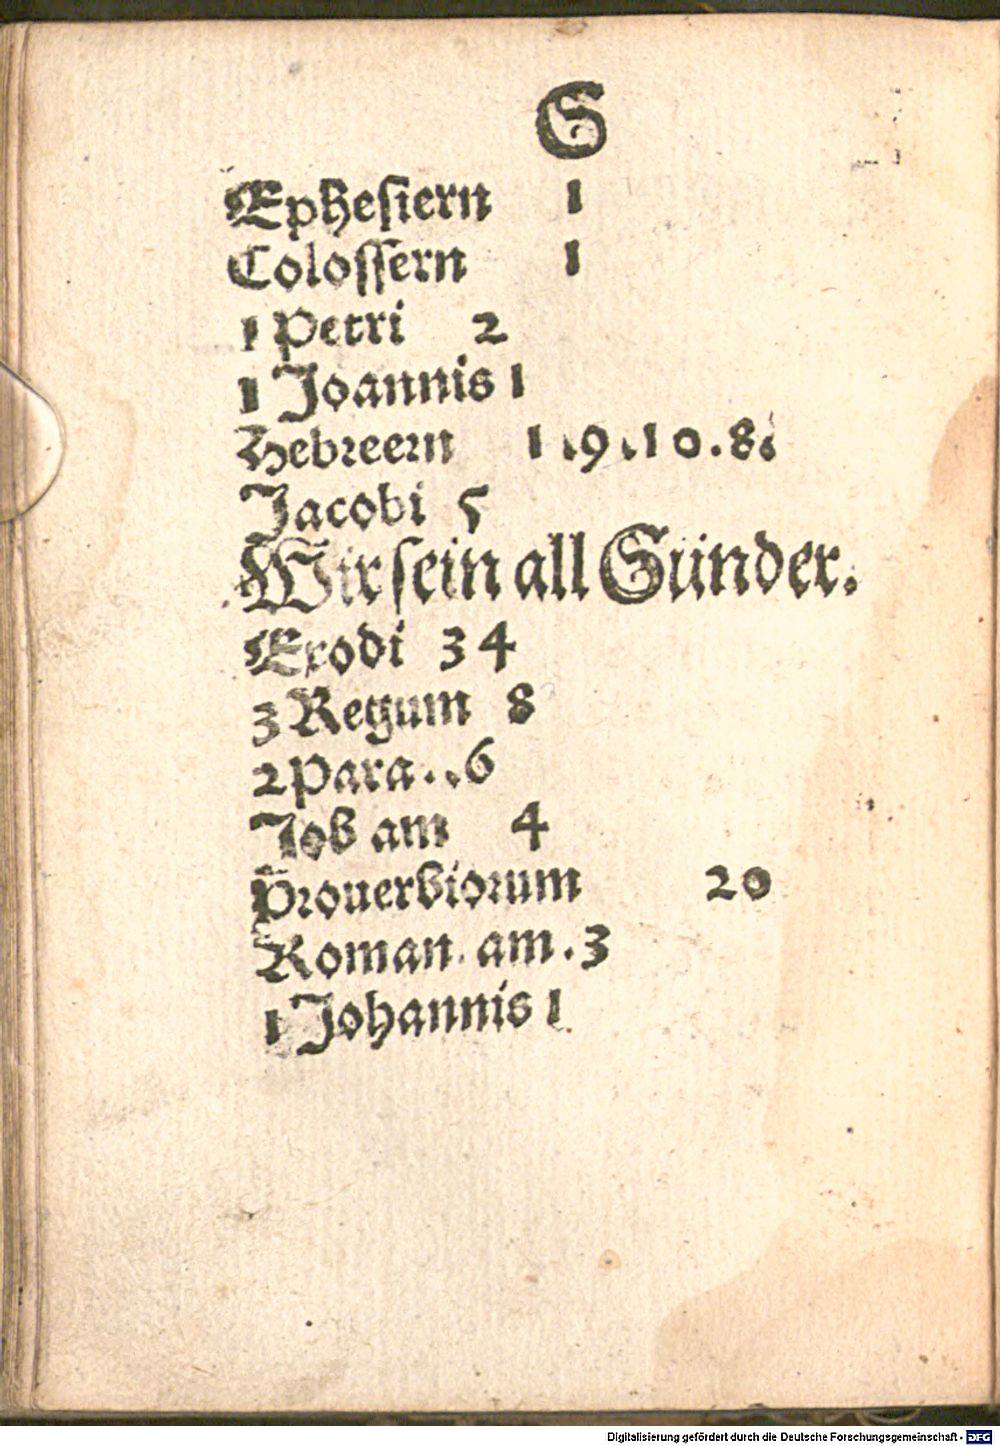 S
Ephesiern 1
Colossern 1
1 Petri 2
1 Joannis 1
Hebreern 1.9.10.8.
Jacobi 5
Wir sein all Sünder.
Exodi 34
3 Regum 8
2 Para...6
Job am 4
Prouerbiorum 20
Roman. am.3
1 Johannis 1
Digitalisierung gefördert durch die Deutsche Forschungsgemeinschaft - DFG